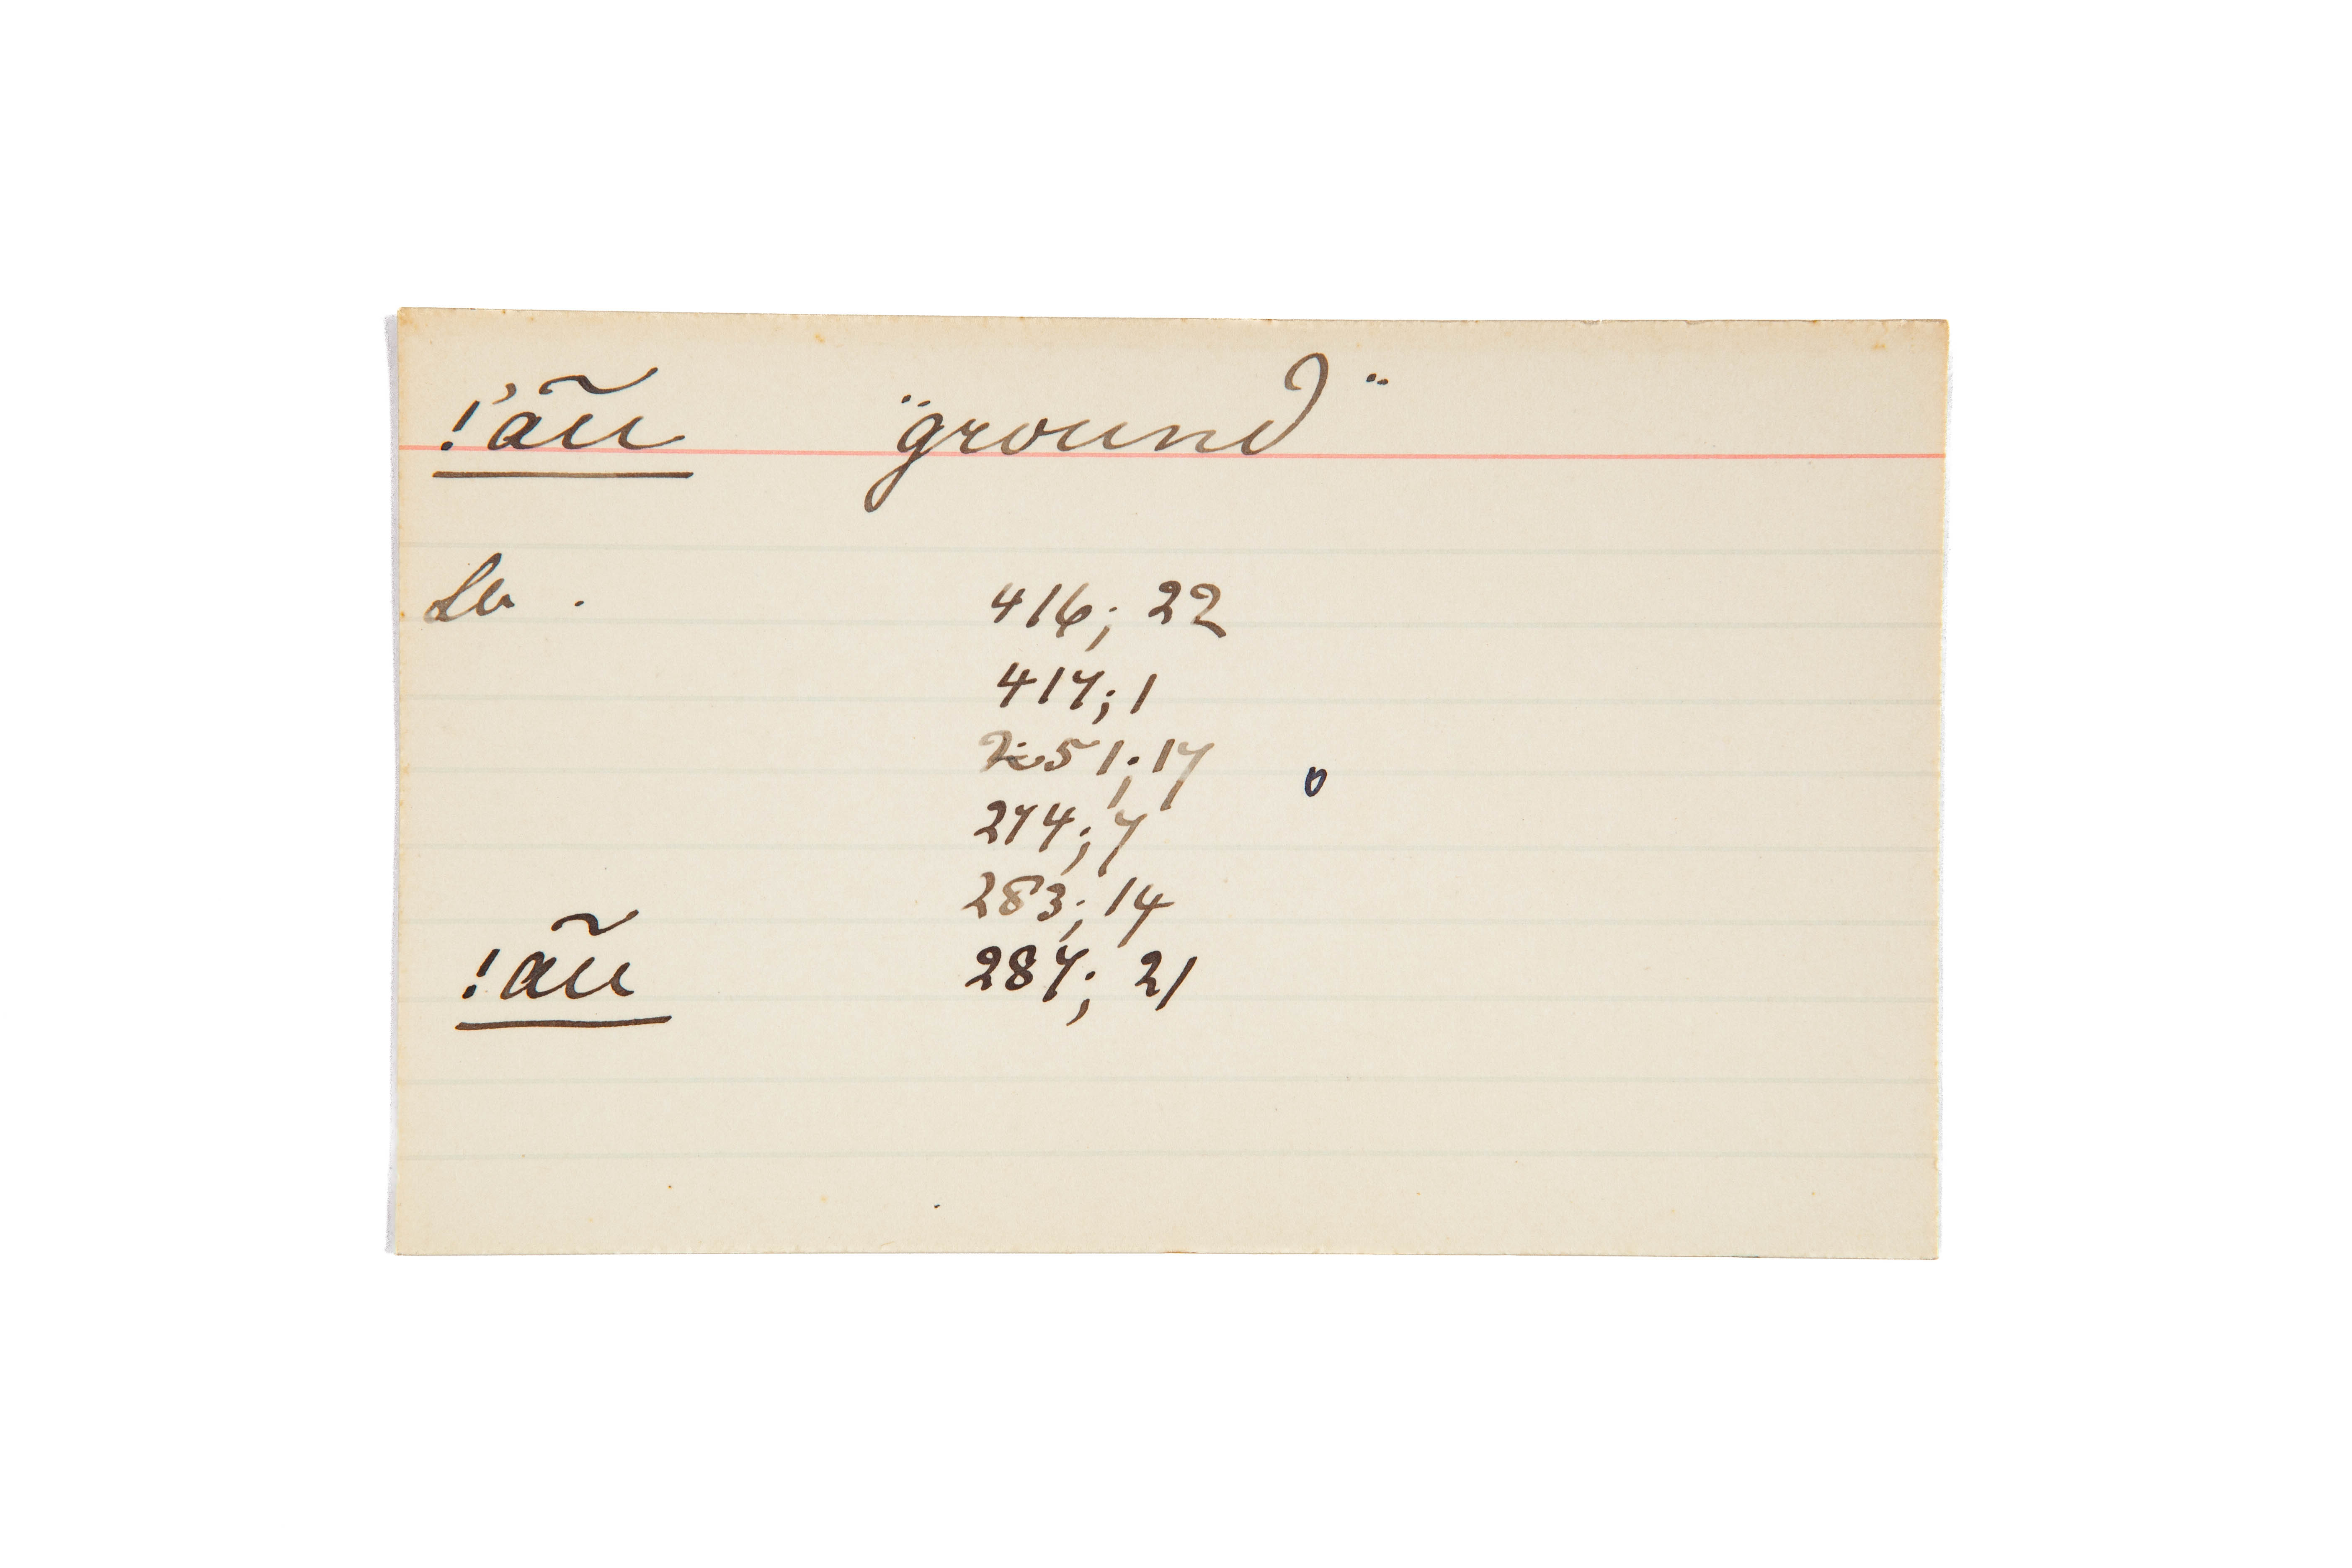 !ʼãu "ground"
Lb . 416; 22
417; 1
251; 17
274; 7
283; 14
!ãu 287; 21